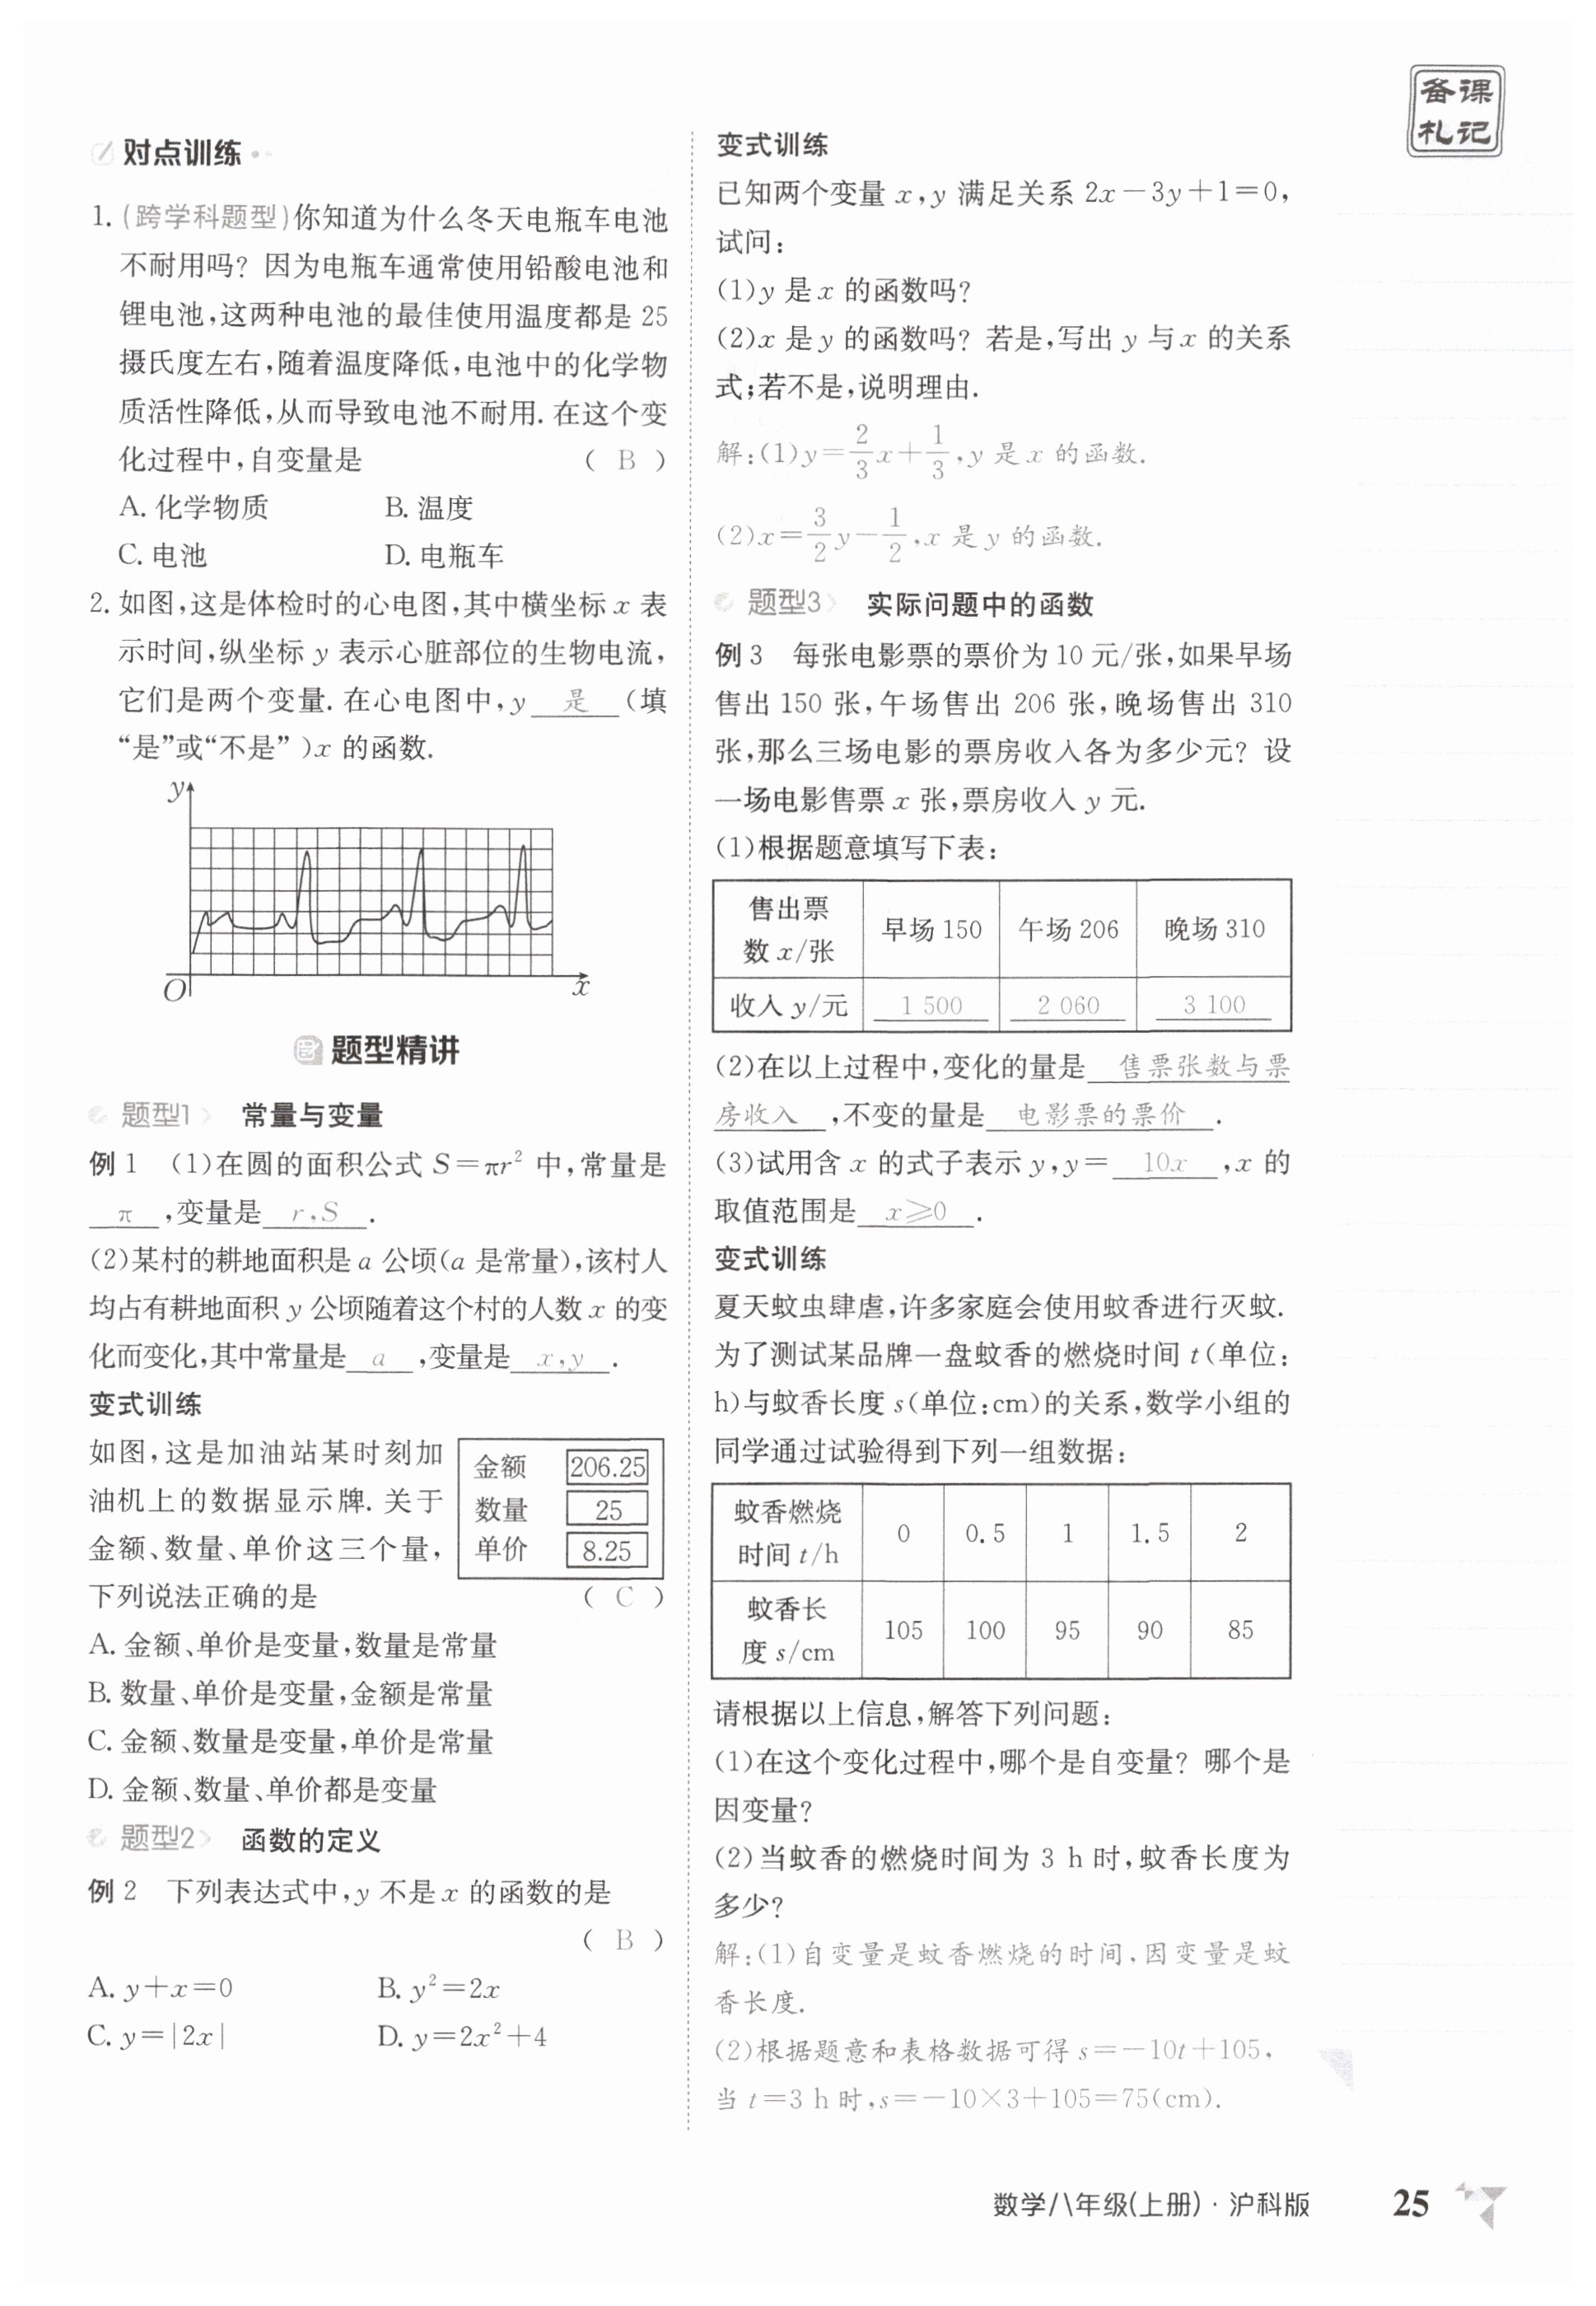 备课
札记
对点训练
1.(跨学科题型)你知道为什么冬天电瓶车电池
不耐用吗？因为电瓶车通常使用铅酸电池和
锂电池，这两种电池的最佳使用温度都是 25
摄氏度左右，随着温度降低，电池中的化学物
质活性降低，从而导致电池不耐用.在这个变
化过程中，自变量是 （ B ）
A.化学物质 B.温度
C.电池 D.电瓶车
2.如图，这是体检时的心电图，其中横坐标 x 表
示时间，纵坐标 y 表示心脏部位的生物电流，
它们是两个变量.在心电图中，y 是 (填
“是”或“不是”)x 的函数.
y
O x
题型精讲
题型1 常量与变量
例 1 (1)在圆的面积公式 S=πr² 中，常量是
π ，变量是 r,S .
(2)某村的耕地面积是 a 公顷(a 是常量)，该村人
均占有耕地面积 y 公顷随着这个村的人数 x 的变
化而变化，其中常量是 a ，变量是 x,y .
变式训练
如图，这是加油站某时刻加
油机上的数据显示牌.关于
金额、数量、单价这三个量，
下列说法正确的是 （ C ）
金额 206.25
数量 25
单价 8.25
A.金额、单价是变量，数量是常量
B.数量、单价是变量，金额是常量
C.金额、数量是变量，单价是常量
D.金额、数量、单价都是变量
题型2 函数的定义
例 2 下列表达式中，y 不是 x 的函数的是
（ B ）
A. y+x=0 B. y²=2x
C. y=|2x| D. y=2x²+4
变式训练
已知两个变量 x,y 满足关系 2x-3y+1=0,
试问：
(1)y 是 x 的函数吗？
(2)x 是 y 的函数吗？若是，写出 y 与 x 的关系
式；若不是，说明理由.
解：(1)y=2/3x+1/3,y 是 x 的函数.
(2)x=3/2y-1/2,x 是 y 的函数.
题型3 实际问题中的函数
例 3 每张电影票的票价为 10 元/张，如果早场
售出 150 张，午场售出 206 张，晚场售出 310
张，那么三场电影的票房收入各为多少元？设
一场电影售票 x 张，票房收入 y 元.
(1)根据题意填写下表：
售出票
数 x/张 早场 150 午场 206 晚场 310
收入 y/元 1 500 2 060 3 100
(2)在以上过程中，变化的量是 售票张数与票
房收入 ，不变的量是 电影票的票价 .
(3)试用含 x 的式子表示 y，y= 10x ，x 的
取值范围是 x≥0 .
变式训练
夏天蚊虫肆虐，许多家庭会使用蚊香进行灭蚊.
为了测试某品牌一盘蚊香的燃烧时间 t(单位：
h)与蚊香长度 s(单位：cm)的关系，数学小组的
同学通过试验得到下列一组数据：
蚊香燃烧
时间 t/h 0 0.5 1 1.5 2
蚊香长
度 s/cm 105 100 95 90 85
请根据以上信息，解答下列问题：
(1)在这个变化过程中，哪个是自变量？哪个是
因变量？
(2)当蚊香的燃烧时间为 3 h 时，蚊香长度为
多少？
解：(1)自变量是蚊香燃烧的时间，因变量是蚊
香长度.
(2)根据题意和表格数据可得 s=-10t+105,
当 t=3 h 时，s=-10×3+105=75(cm).
数学/八年级(上册)·沪科版 25